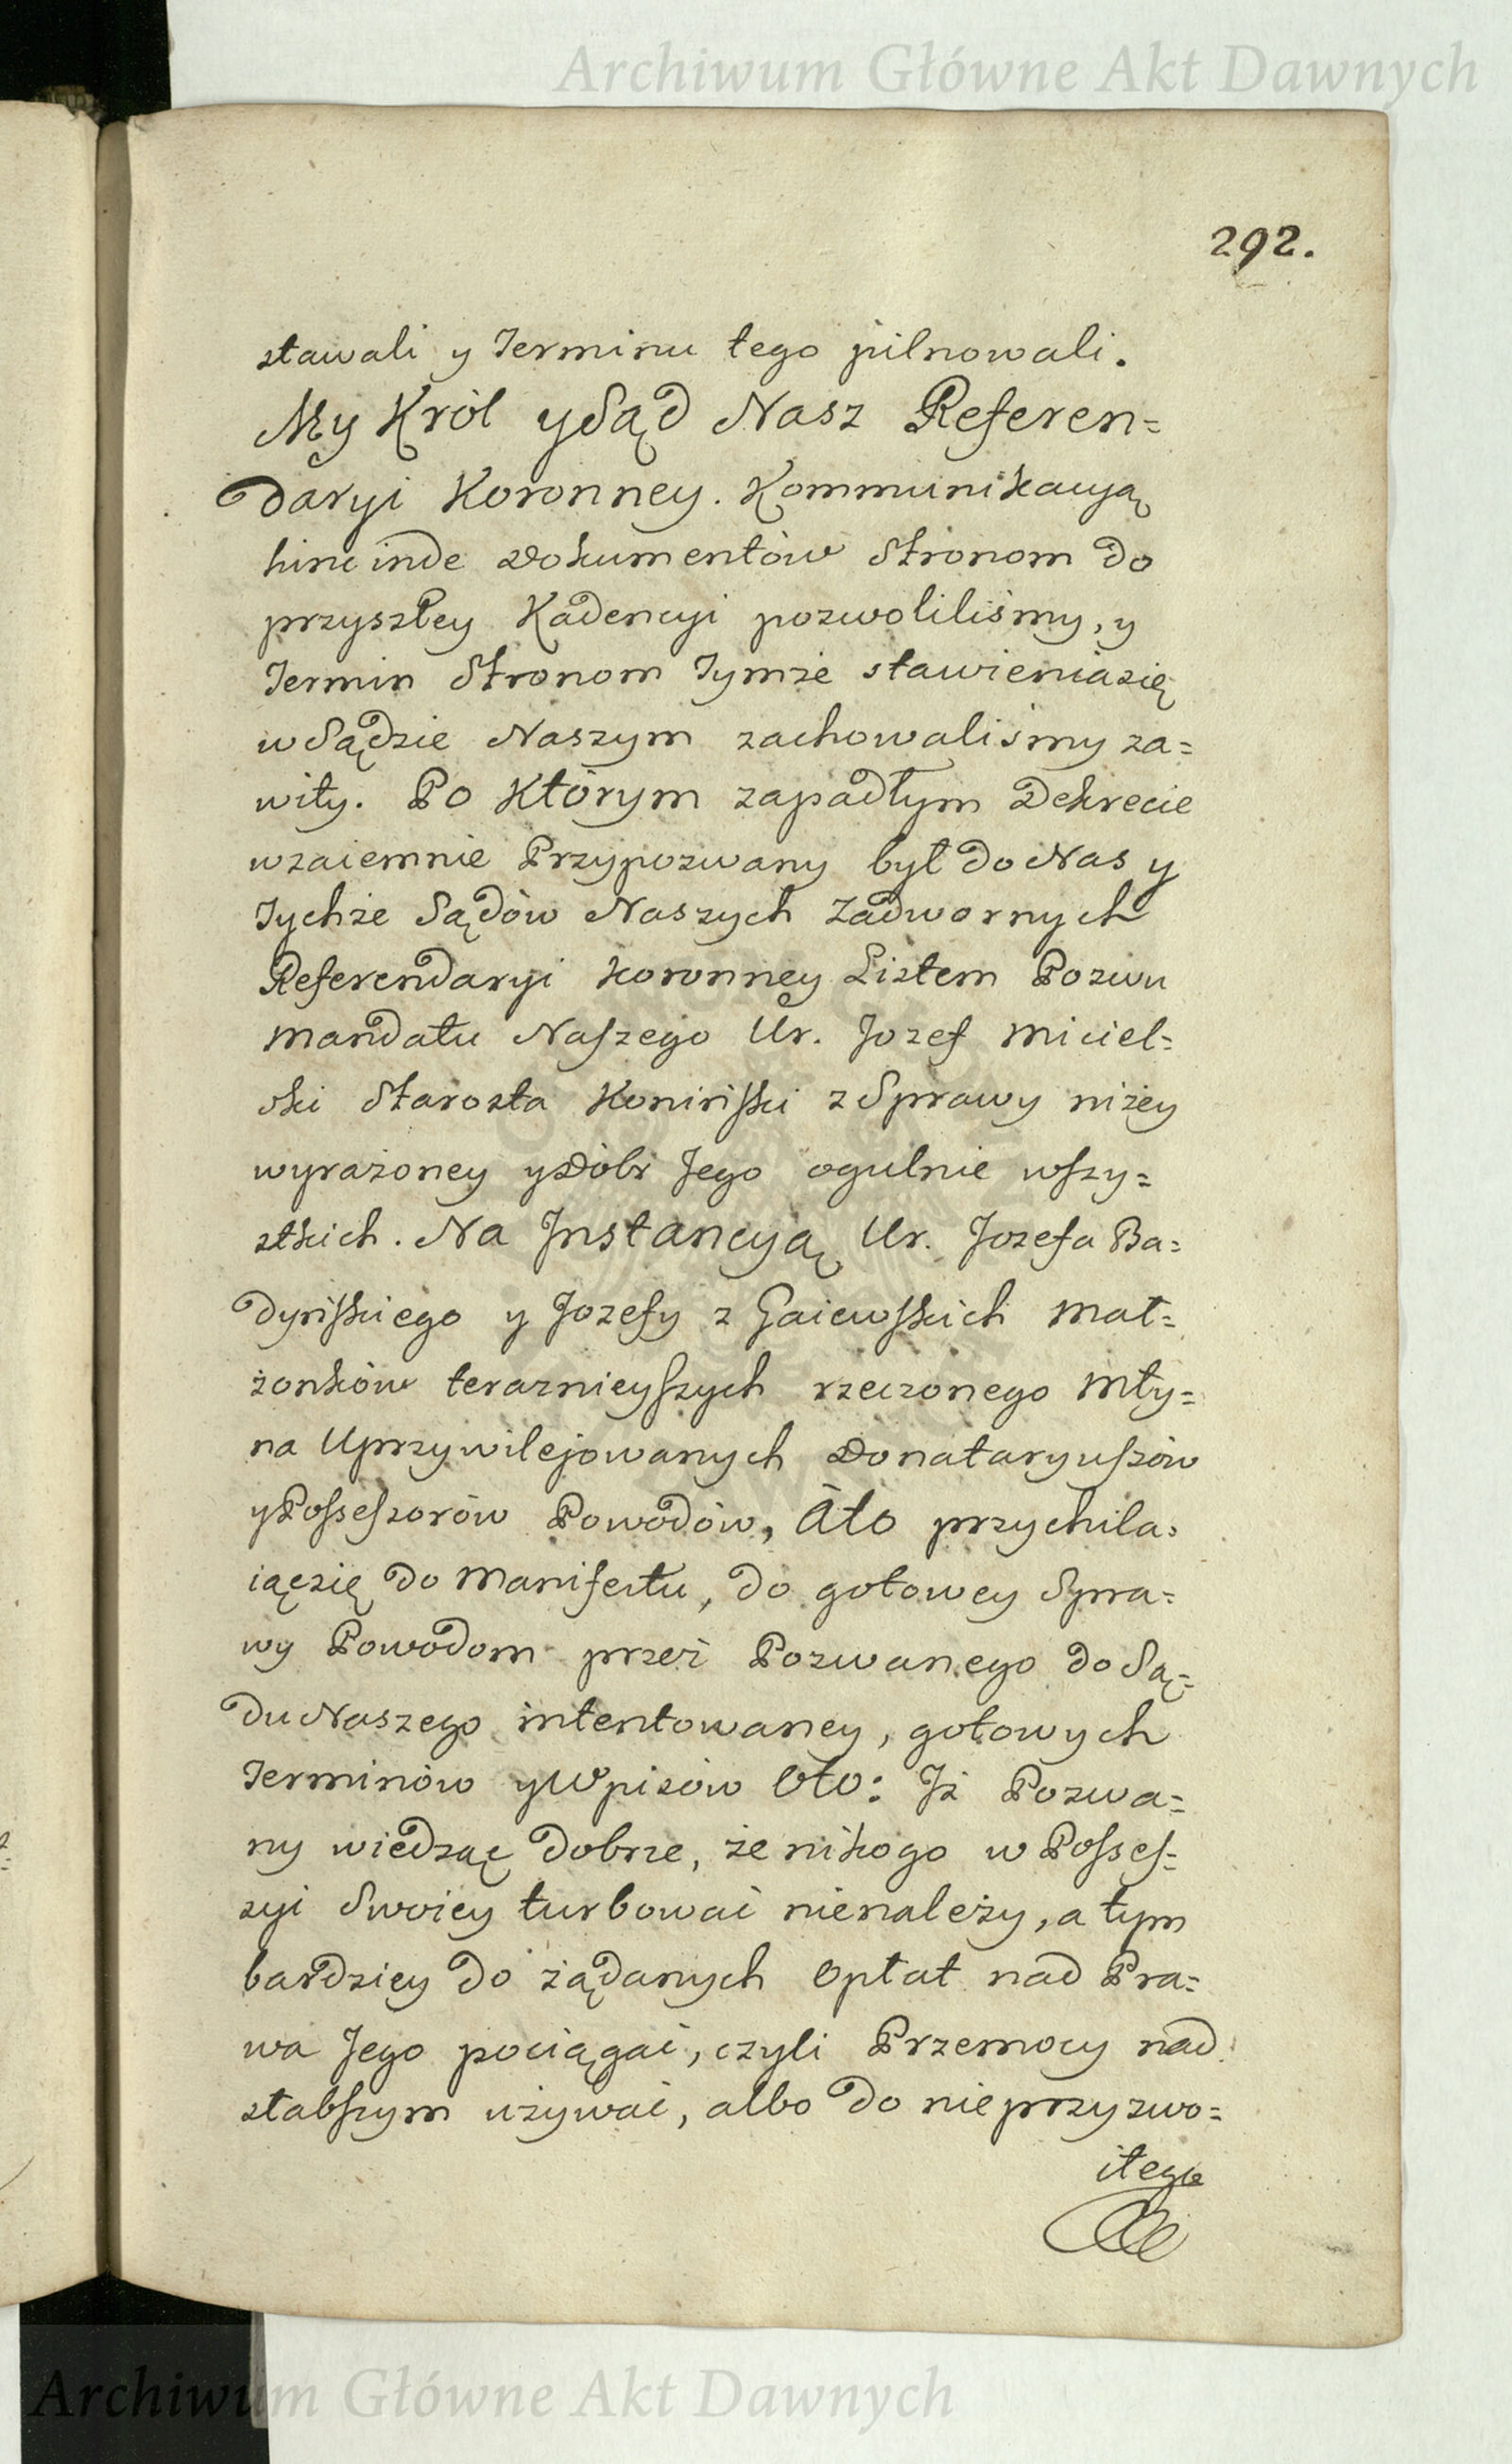 Archiwum Główne Akt Dawnych
292.
stawali y Terminu tego pilnowali.
My Król y Sąd Nasz Referen=
daryi Koronney. Kommunikacyą
hinc inde Dokumentów Stronom do
przyszłey Kadencyi pozwoliliśmy, y
Termin Stronom Tymże stawienia się
w Sądzie Naszym zachowaliśmy za=
wity. Po którym zapadłym Dekrecie
wzaiemnie Przypozwany był do Nas y
Tychże Sądów Naszych Zadwornych
Referendaryi Koronney Listem Pozwu
Mandatu Naszego Ur. Jozef Miciel=
ski Starosta Koniński z Sprawy niżey
wyrażoney y Dóbr Jego ogulnie wszy=
stkich. Na Jnstancyą Ur. Jozefa Ba=
dyńskiego y Jozefy z Gaiewskich Mał=
żonków teraznieyszych rzeczonego Mły=
na Uprzywilejowanych Donataryuszów
y Possessorów Powodów, Ato przychila=
iąc się do Manifestu, do gotowey Spra=
wy Powodom przez Pozwanego do Są=
du Naszego intentowaney, gotowych
Terminów y Wpisów Oto: Jż Pozwa=
ny wiedząc dobrze, że nikogo w Posses=
syi Swoiey turbować nienależy, a tym
bardziey do żądanych Opłat nad Pra=
wa Jego pociągać, czyli Przemocy nad
słabszym używać, albo do nieprzyzwo=
itego
Archiwum Główne Akt Dawnych